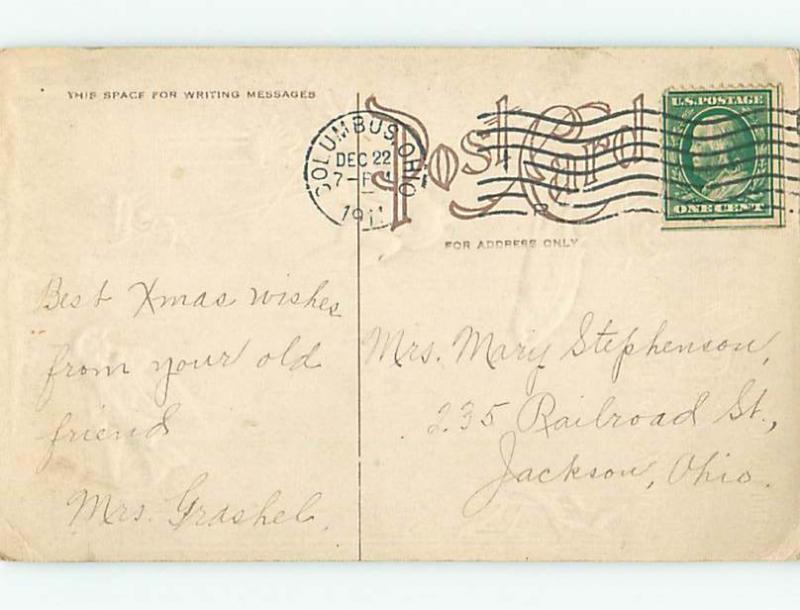 THIS SPACE FOR WRITING MESSAGES
Post Card
FOR ADDRESS ONLY
COLUMBUS, OHIO
DEC 22
7-P M
1911
U.S. POSTAGE
ONE CENT
Best Xmas wishes
from your old
friend
Mrs. Grashel.
Mrs. Mary Stephenson,
235 Railroad St.,
Jackson, Ohio.